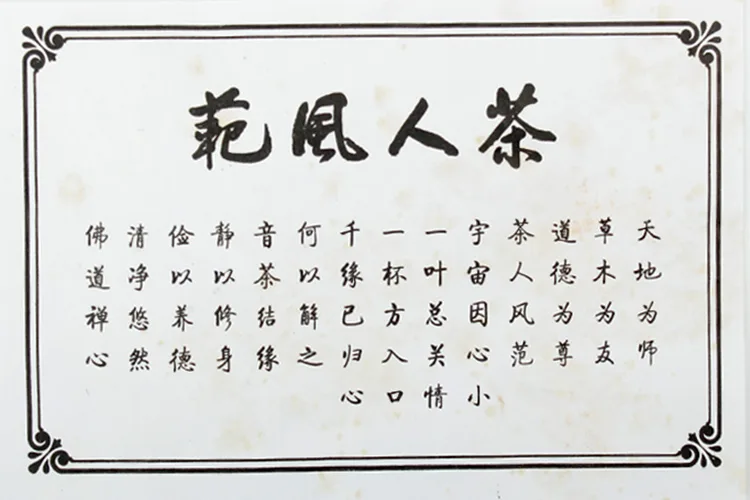 茶人風範
天地为师
草木为友
道德为尊
茶人风范
宇宙因心小
一叶总关情
一杯方入口
千缘已归心
何以解之
音茶结缘
静以修身
俭以养德
清净悠然
佛道禅心